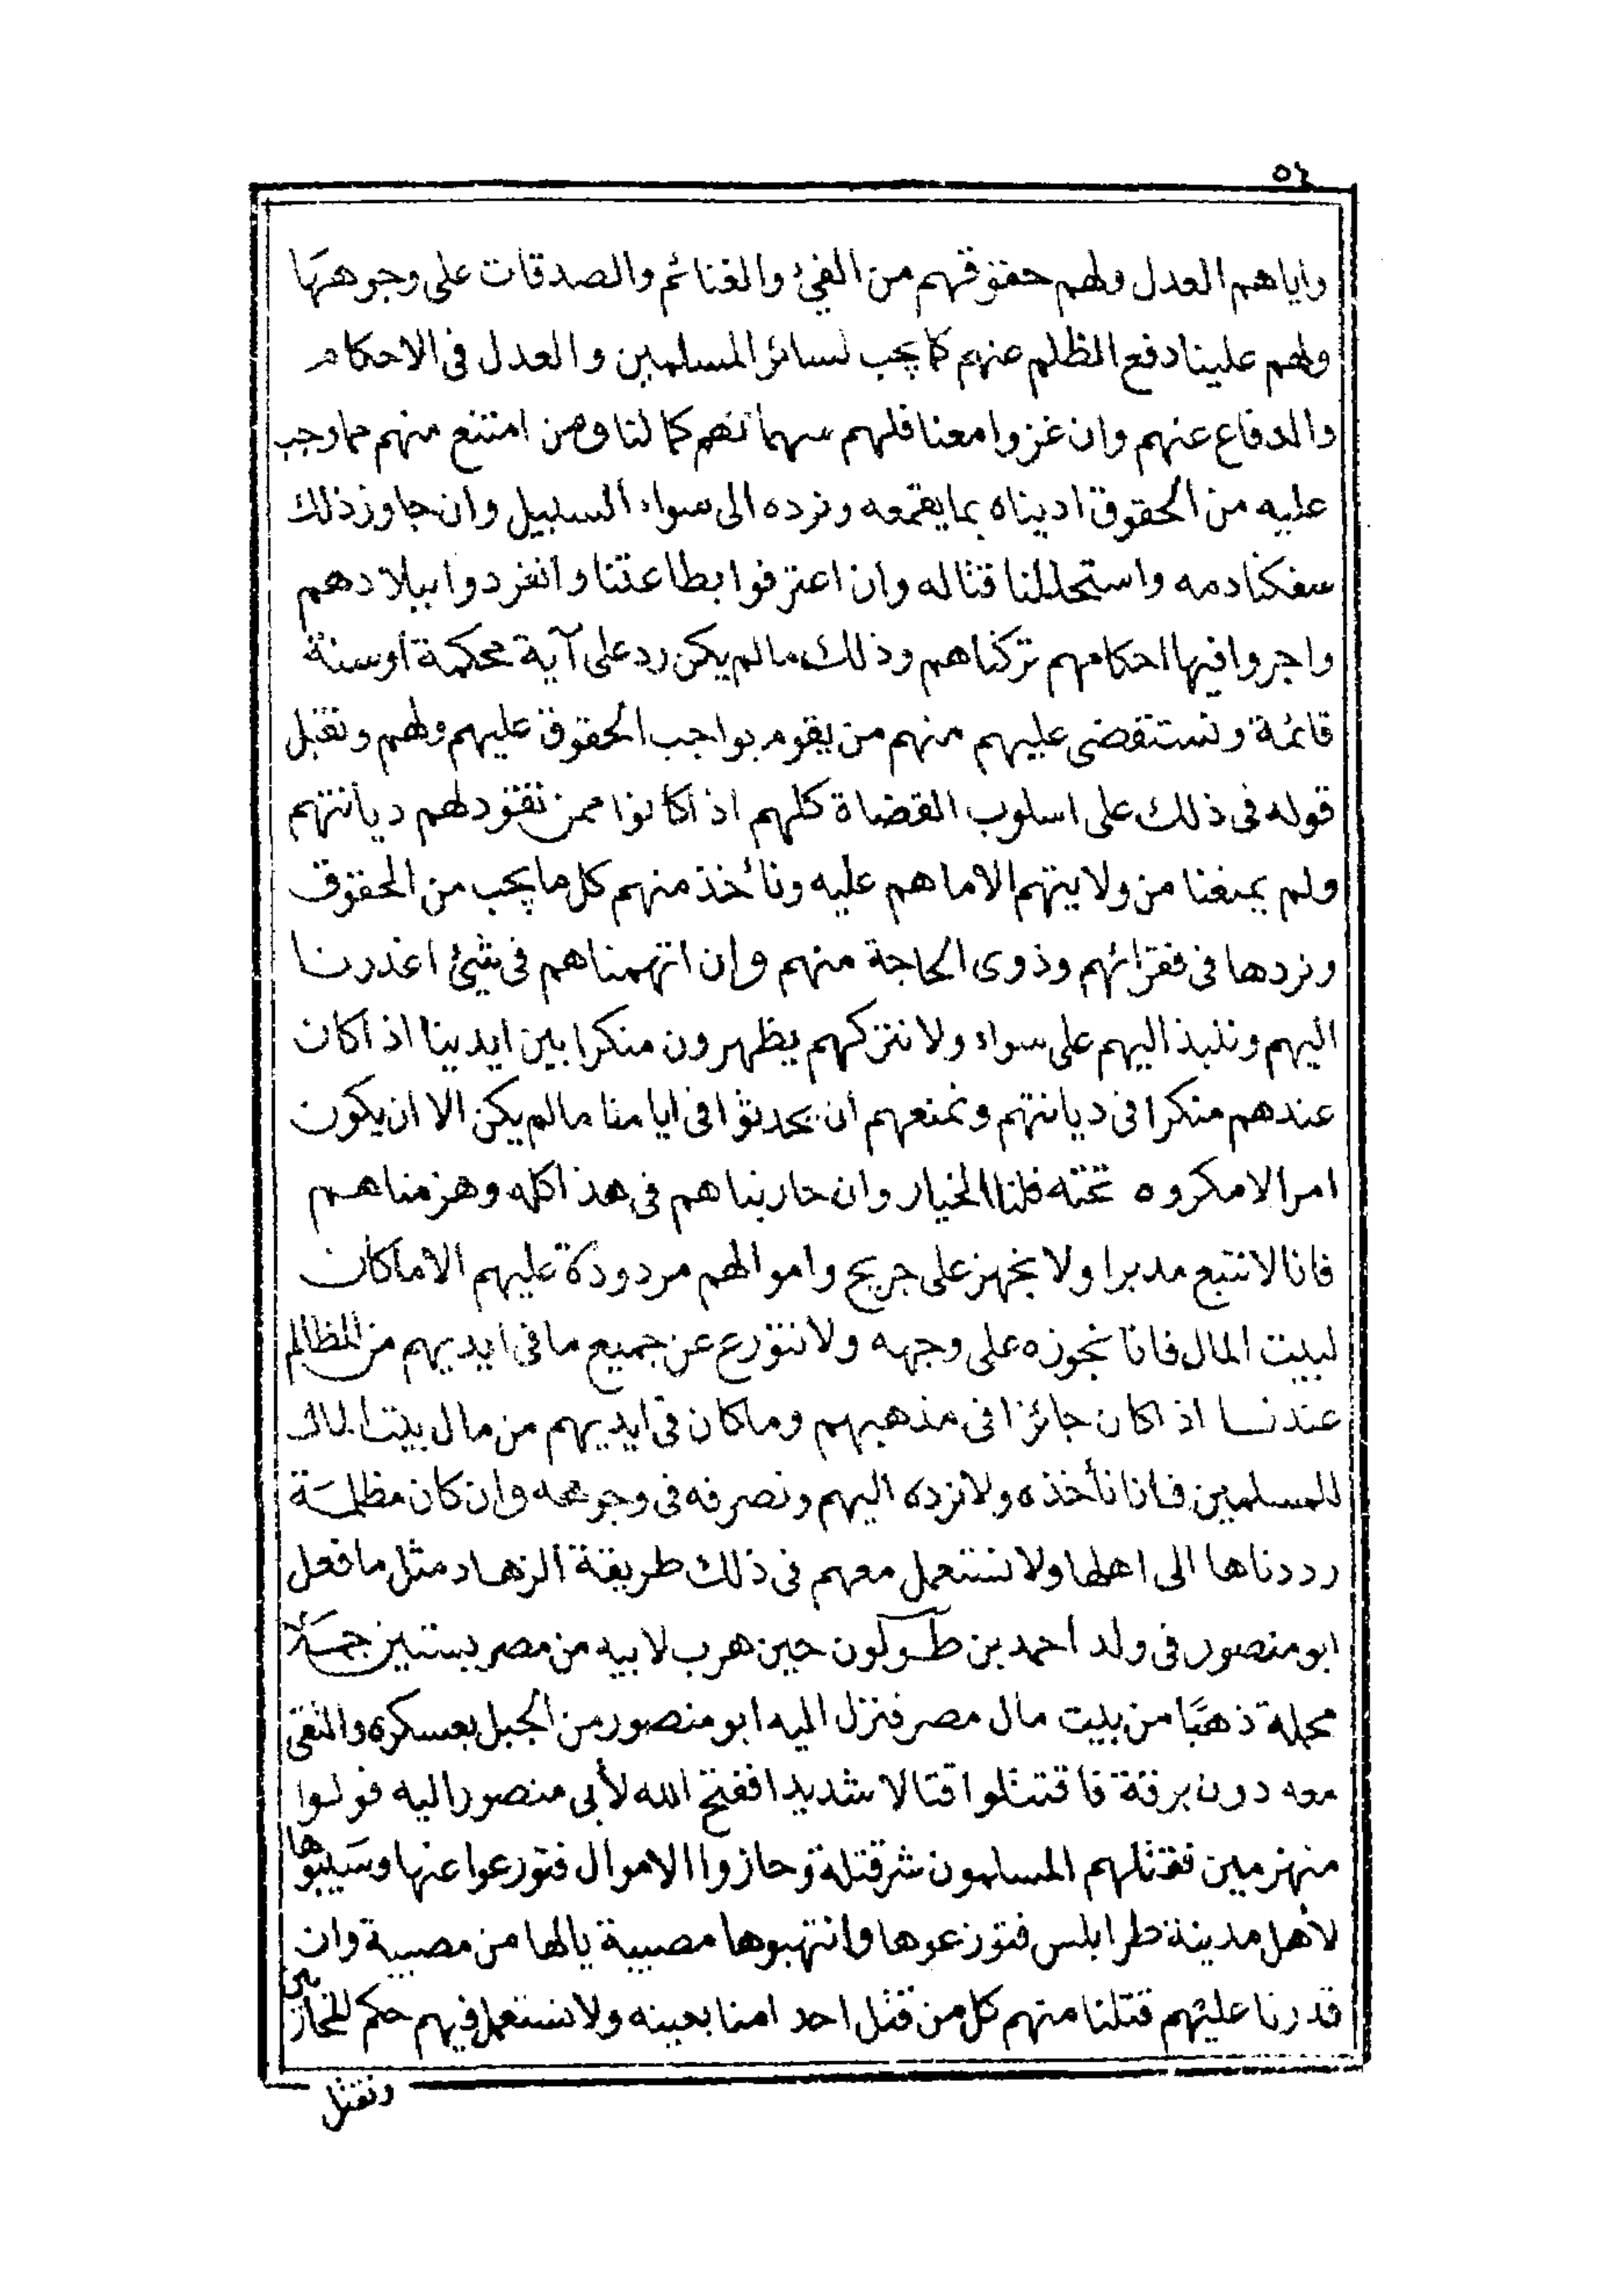 ٥٤
واياهم العدل ولهم حقوقهم من الفيئ والغنائم والصدقات على وجوهها
ولهم علينا دفع الظلم عنهم كما يجب لسائر المسلمين والعدل فى الاحكام
والدفاع عنهم وان غزوا معنا فلهم سهمانهم كما لنا ومن امتنع منهم مما وجب
عليه من الحقوق ادبناه بما يقمعه ونرده الى سواء السبيل وان جاوز ذلك
سفكنا دمه واستحللنا قتاله وان اعترفوا بطاعتنا وانفردوا ببلادهم
واجروا فيها احكامهم تركناهم وذلك ما لم يكن رد على آية محكمة أو سنة
قائمة ونستقضى عليهم منهم من يقوم بواجب الحقوق عليهم ولهم ونقبل
قوله فى ذلك على اسلوب القضاة كلهم اذا كانوا ممن تقودلهم ديانتهم
ولم يمنعنا من ولايتهم الا ما هم عليه ونأخذ منهم كل ما يجب من الحقوق
ونردها فى فقرائهم وذوى الحاجة منهم وإن اتهمناهم فى شيئ اعذرنا
اليهم وننبذ اليهم على سواء ولا نتركهم يظهرون منكرا بين ايدينا اذا كان
عندهم منكرا فى ديانتهم ونمنعهم ان يحدثوا فى ايامنا ما لم يكن الا ان يكون
امرا لا مكروه تحته فلنا الخيار وان حاربناهم فى هذا كله وهزمناهم
فانا لا نتبع مدبرا ولا نجهز على جريح واموالهم مردودة عليهم الا ما كان
لبيت المال فانا نحوزه على وجهه ولا نتورع عن جميع ما فى ايديهم من المظالم
عندنا اذا كان جائزا فى مذهبهم وما كان فى ايديهم من مال بيت المال
للمسلمين فانا نأخذه ولا نرده اليهم ونصرفه فى وجوهه وان كان مظلمة
رددناها الى اهلها ولا نستعمل معهم فى ذلك طريقة الزهاد مثل ما فعل
ابو منصور فى ولد احمد بن طولون حين هرب لابيه من مصر بستين جملا
محملة ذهبًا من بيت مال مصر فنزل اليه ابو منصور من الجبل بعسكره والتقى
معه دون برقة فاقتتلوا قتالا شديدا ففتح الله لأبى منصور اليه فولوا
منهزمين فقتلهم المسلمون شر قتلة وحازوا الاموال فتورعوا عنها وسيبوها
لأهل مدينة طرابلس فتوزعوها وانتهبوها مصيبة يالها من مصيبة وان
قدرنا عليهم قتلنا منهم كل من قتل احدا منا بعينه ولا نستعمل فيهم حكم المحاربين
ونقتل